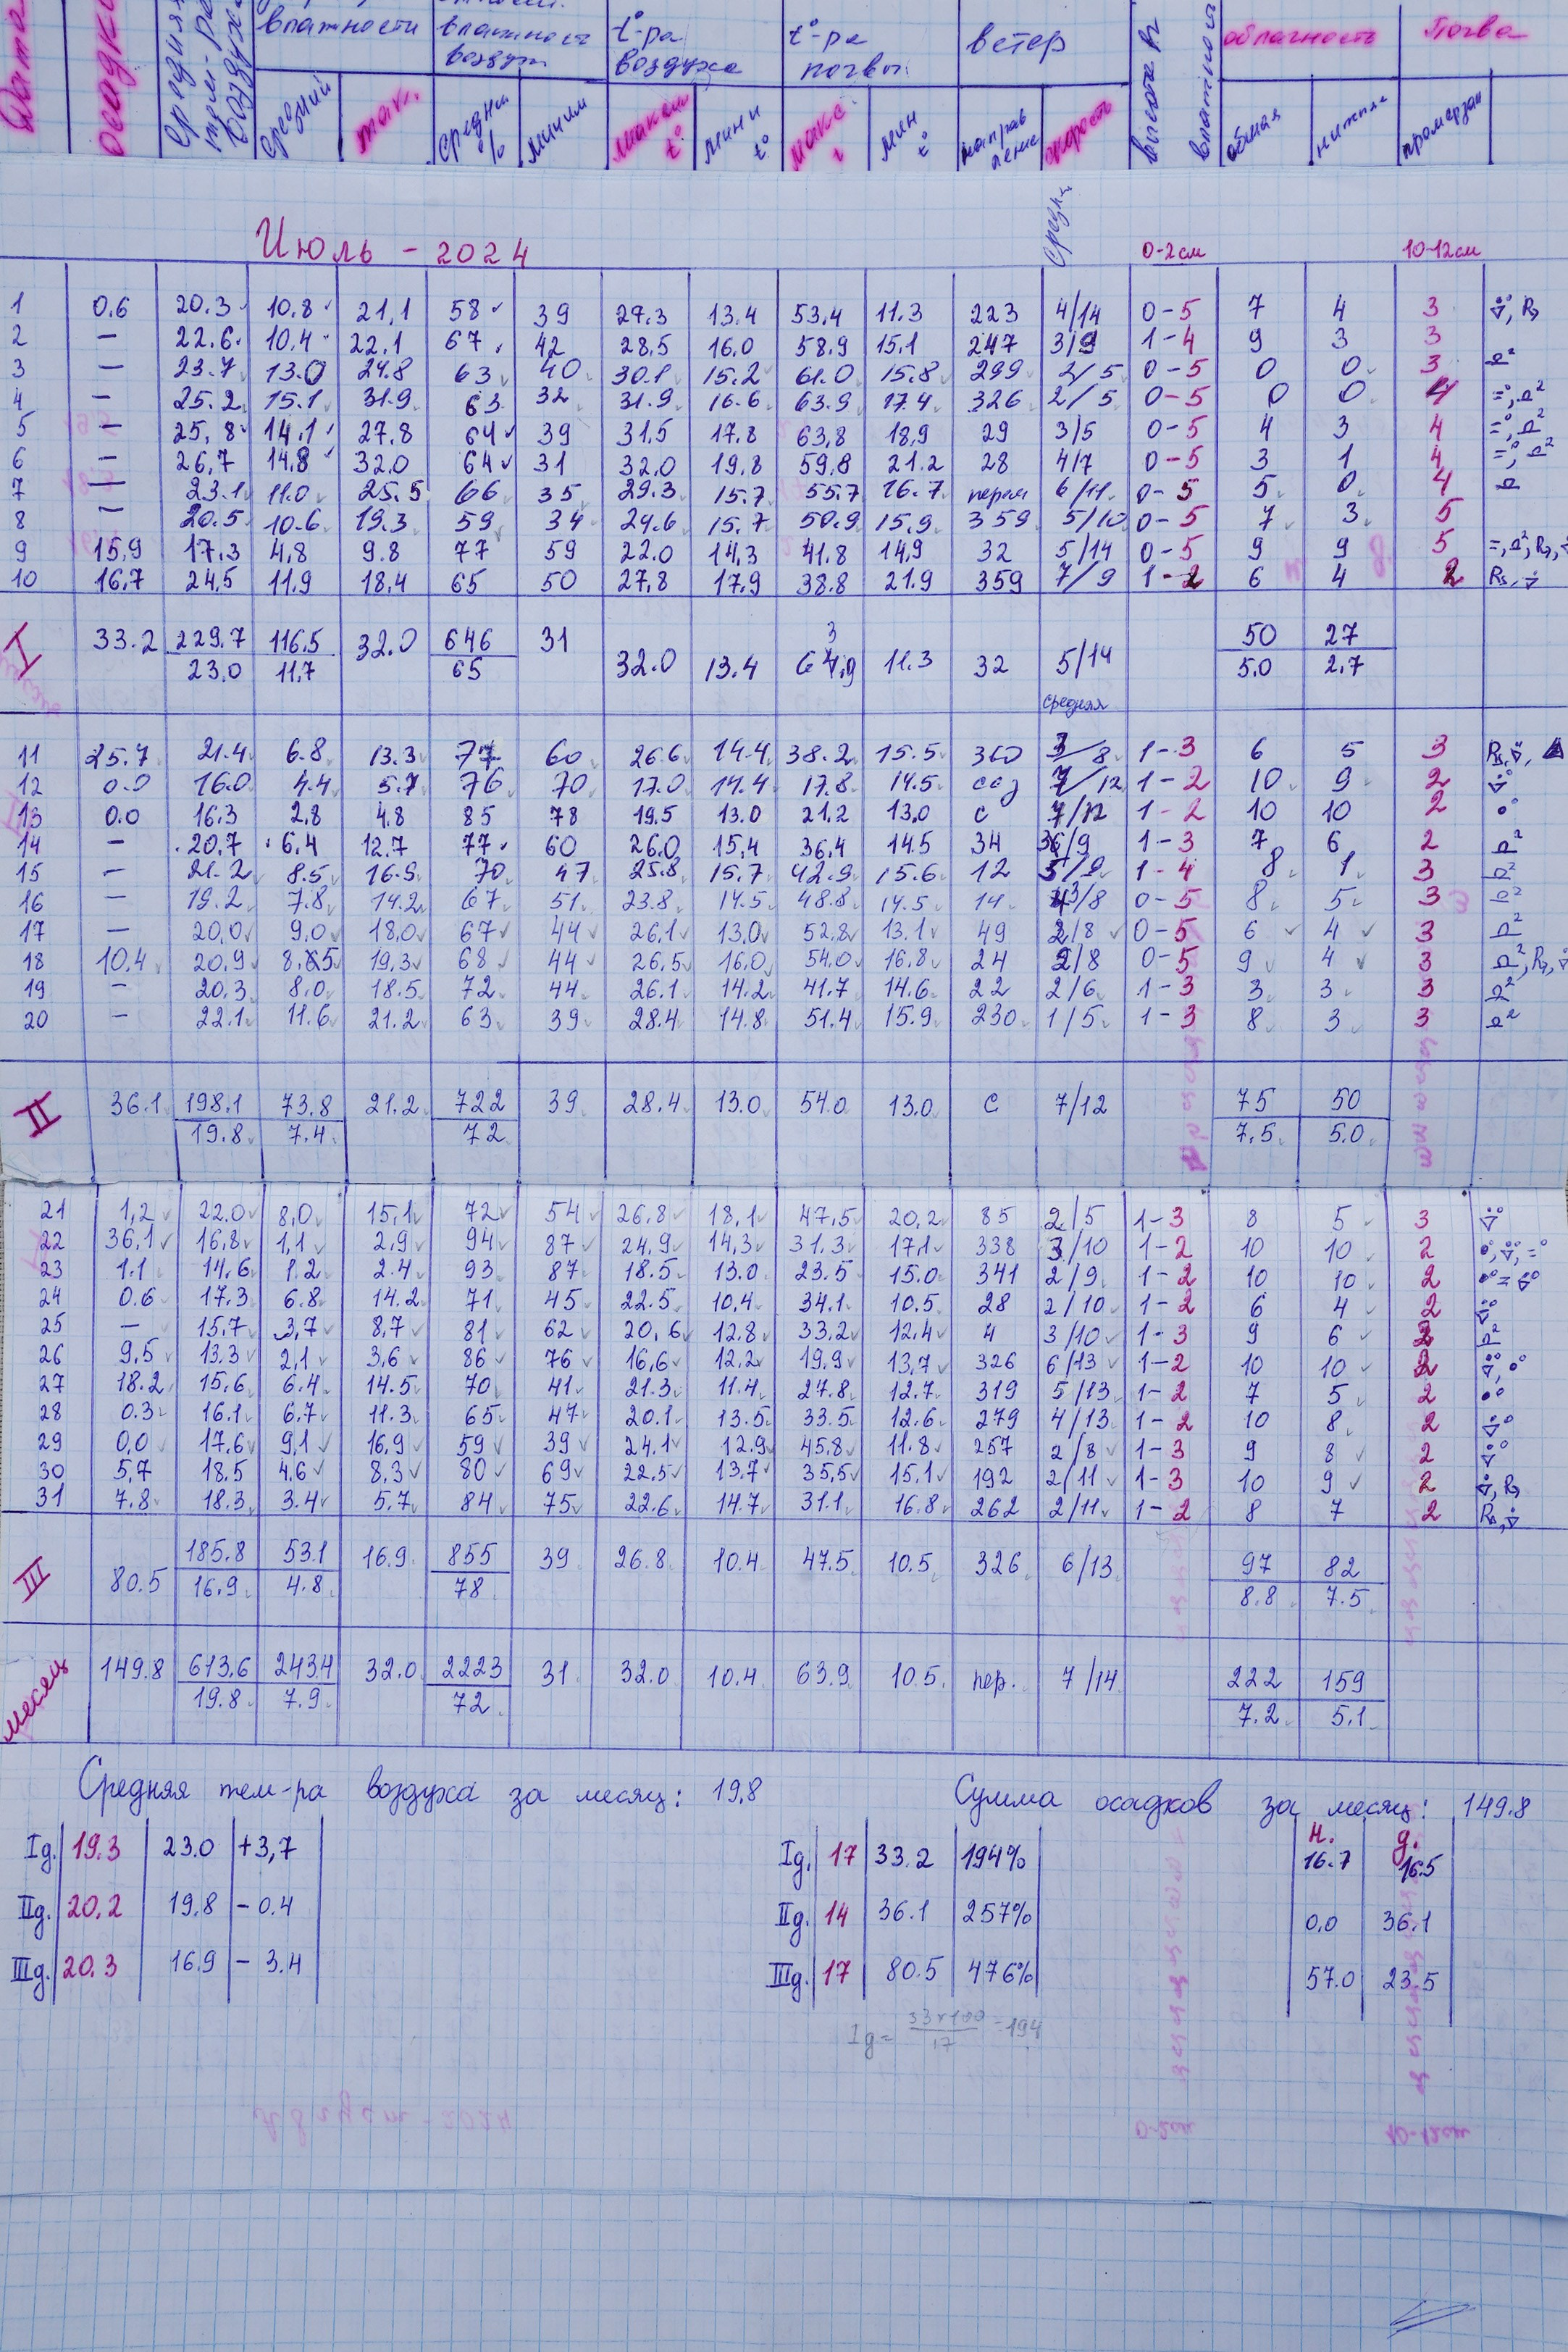 Дата осадки Средняя тем-ра воздуха влажности влажность воздух t°-ра воздуха t°-ра почвы ветер влажности облачность Почва
средний макс. средня % миним максим t° мини t° макс t мин t° направ ление скорость общая нижняя промерзан
средня
Июль - 2024 0-2см 10-12см
1 0.6 20.3 10.8 21,1 58 39 27.3 13.4 53.4 11.3 223 4/14 0-5 7 4 3
2 — 22.6 10.4 22.1 67 42 28.5 16.0 58.9 15.1 247 3/9 1-4 9 3 3
3 — 23.7 13.0 24.8 63 40 30.1 15.2 61.0 15.8 299 2/5 0-5 0 0 3
4 — 25.2 15.1 31.9 63 32 31.9 16.6 63.9 17.4 326 2/5 0-5 0 0 4
5 — 25,8 14,1 27.8 64 39 31,5 17.8 63,8 18,9 29 3/5 0-5 4 3 4
6 — 26,7 14,8 32.0 64 31 32.0 19.8 59.8 21.2 28 4/7 0-5 3 1 4
7 — 23.1 11.0 25.5 66 35 29.3 15.7 55.7 16.7 перем 6/11 0-5 5 0 4
8 — 20.5 10.6 19.3 59 34 24.6 15.7 50.9 15.9 359 5/10 0-5 7 3 5
9 15,9 17,3 4,8 9.8 77 59 22.0 14,3 41.8 14,9 32 5/14 0-5 9 9 5
10 16,7 24,5 11,9 18,4 65 50 27,8 17,9 38.8 21.9 359 7/9 1-2 6 4 2
I 33.2 229.7 116,5 32.0 646 31 32.0 13.4 11.3 32 5/14 50 27
23,0 11,7 65 5.0 2,7
средняя
11 25.7 21.4 6.8 13.3 77 60 26.6 14.4 38.2 15.5 360 3/8 1-3 6 5 3
12 0.0 16.0 4.4 5.7 76 70 17.0 14.4 17.8 14.5 ссз 7/12 1-2 10 9 2
13 0.0 16,3 2,8 4.8 85 78 19.5 13.0 21,2 13,0 с 7/12 1-2 10 10 2
14 — 20,7 6,4 12.7 77 60 26.0 15,4 36,4 14.5 34 1-3 7 6 2
15 — 21.2 8.5 16.9 70 47 25.8 15,7 42.9 15.6 12 5/9 1-4 8 1 3
16 — 19.2 7.8 14.2 67 51 23.8 14.5 48.8 14.5 14 0-5 8 5 3
17 — 20,0 9,0 18,0 67 44 26,1 13,0 52,8 13,1 49 2/8 0-5 6 4 3
18 10,4 20,9 19,3 68 44 26,5 16,0 54.0 16,8 24 2/8 0-5 9 4 3
19 — 20,3 8,0 18.5 72 44 26.1 14.2 41.7 14.6 22 2/6 1-3 3 3 3
20 — 22.1 11.6 21.2 63 39 28.4 14.8 51.4 15.9 230 1/5 1-3 8 3 3
II 36.1 198.1 73.8 21.2 722 39 28.4 13.0 54.0 13.0 с 7/12 75 50
19.8 7.4 72 7.5 5.0
21 1,2 22.0 8,0 15,1 72 54 26,8 18,1 47,5 20,2 85 2/5 1-3 8 5 3
22 36,1 16,8 1,1 2,9 94 87 24,9 14,3 31.3 17,1 338 3/10 1-2 10 10 2
23 1.1 14.6 1.2 2.4 93 87 18.5 13.0 23.5 15.0 341 2/9 1-2 10 10 2
24 0.6 17.3 6.8 14.2 71 45 22.5 10,4 34.1 10.5 28 2/10 1-2 6 4 2
25 — 15,7 3,7 8,7 81 62 20,6 12.8 33,2 12,4 4 3/10 1-3 9 6 2
26 9,5 13.3 2,1 3,6 86 76 16,6 12,2 19,9 13,7 326 6/13 1-2 10 10 2
27 18.2 15,6 6.4 14.5 70 41 21.3 11.4 27.8 12.7 319 5/13 1-2 7 5 2
28 0.3 16.1 6.7 11.3 65 47 20.1 13.5 33.5 12.6 279 4/13 1-2 10 8 2
29 0,0 17.6 9,1 16,9 59 39 24.1 12.9 45,8 11.8 257 2/8 1-3 9 8 2
30 5,7 18,5 4,6 8,3 80 69 22,5 13,7 35,5 15,1 192 2/11 1-3 10 9 2
31 7.8 18.3 3.4 5.7 84 75 22.6 14.7 31.1 16.8 262 2/11 1-2 8 7 2
III 80.5 185.8 53.1 16.9 855 39 26.8 10.4 47.5 10.5 326 6/13 97 82
16.9 4.8 78 8.8 7.5
месяц 149.8 613,6 243.4 32.0 2223 31 32.0 10.4 63.9 10.5 пер. 7/14 222 159
19.8 7.9 72 7.2 5.1
Средняя тем-ра воздуха за месяц: 19,8 Сумма осадков за месяц: 149.8
н. д.
Iд. 19.3 23.0 +3,7 Iд. 17 33.2 194% 16.7 16.5
IIд. 20.2 19.8 - 0.4 IIд. 14 36.1 257% 0.0 36.1
IIIд. 20.3 16.9 - 3.4 IIIд. 17 80.5 476% 57.0 23.5
Iд = 33×100 = 194
17